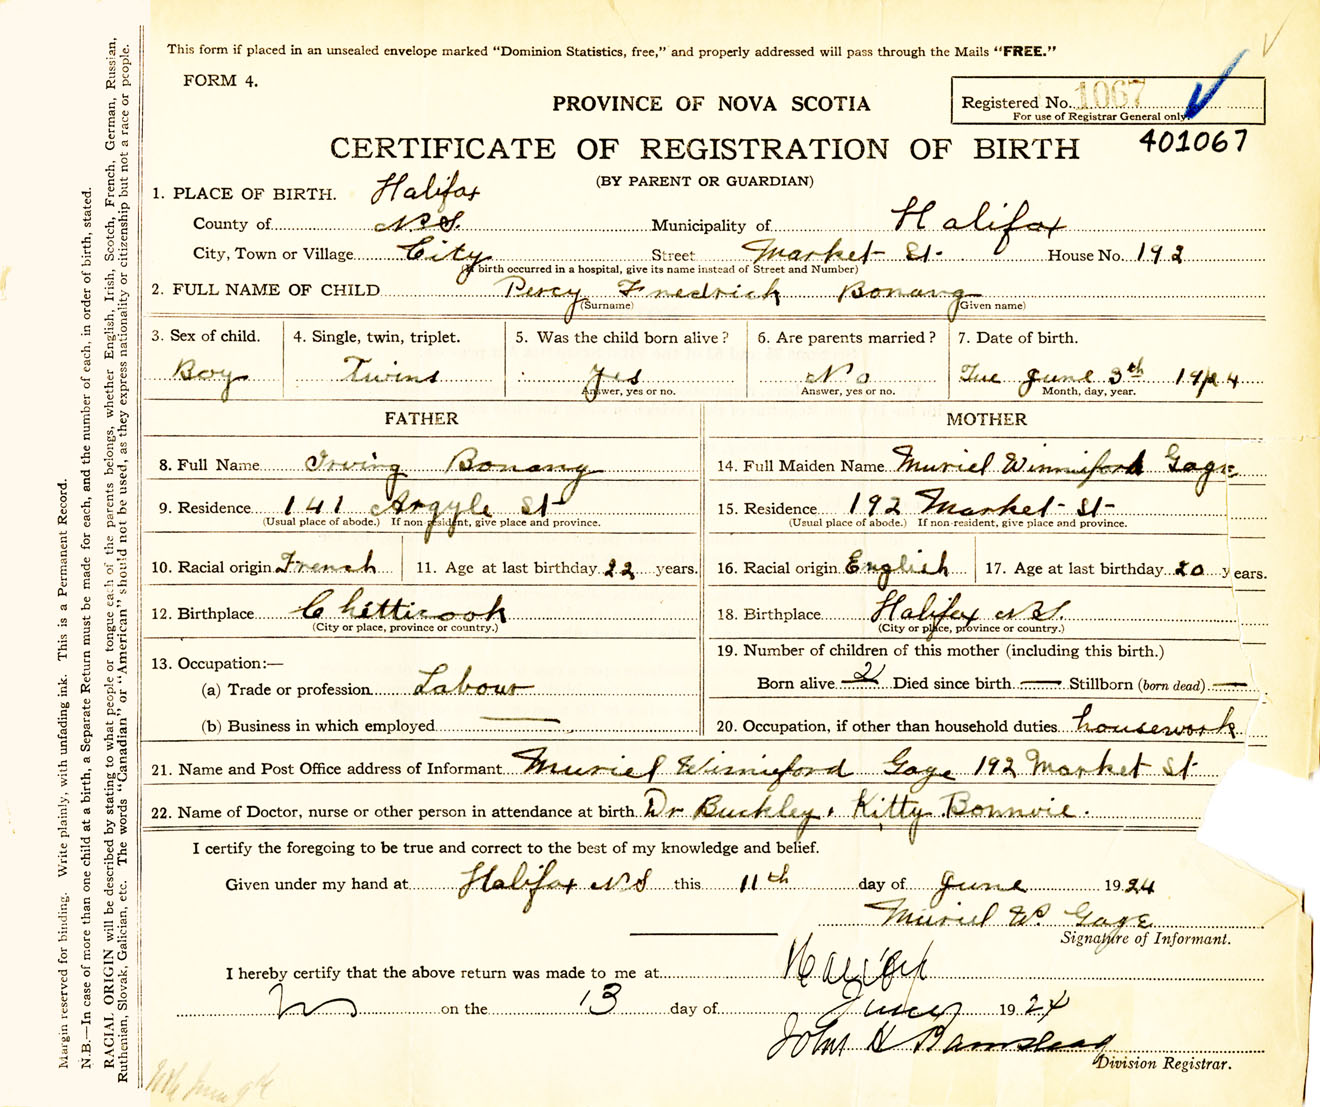 This form if placed in an unsealed envelope marked "Dominion Statistics, free," and properly addressed will pass through the Mails "FREE."
FORM 4.
PROVINCE OF NOVA SCOTIA
Registered No. 1067
For use of Registrar General only.
401067
CERTIFICATE OF REGISTRATION OF BIRTH
(BY PARENT OR GUARDIAN)
1. PLACE OF BIRTH. Halifax
County of N.S. Municipality of Halifax
City, Town or Village City Street Market St. House No. 192
(If birth occurred in a hospital, give its name instead of Street and Number)
2. FULL NAME OF CHILD Percy Fredrick Bonang
(Surname) (Given name)
3. Sex of child. 4. Single, twin, triplet. 5. Was the child born alive? 6. Are parents married? 7. Date of birth.
Boy Twins Yes No Tue June 3th 1924
Answer, yes or no. Answer, yes or no. Month, day, year.
FATHER MOTHER
8. Full Name Irving Bonang 14. Full Maiden Name Muriel Winniford Gage
9. Residence 141 Argyle St 15. Residence 192 Market St
(Usual place of abode.) If non resident, give place and province. (Usual place of abode.) If non-resident, give place and province.
10. Racial origin French 11. Age at last birthday 22 years. 16. Racial origin English 17. Age at last birthday 20 years.
12. Birthplace Chetticook 18. Birthplace Halifax N.S.
(City or place, province or country.) (City or place, province or country.)
13. Occupation:— 19. Number of children of this mother (including this birth.)
(a) Trade or profession Labour Born alive 2 Died since birth — Stillborn (born dead) —
(b) Business in which employed — 20. Occupation, if other than household duties housework
21. Name and Post Office address of Informant Muriel Winniford Gage 192 Market St
22. Name of Doctor, nurse or other person in attendance at birth Dr Buckley. Kitty Bonnvie.
I certify the foregoing to be true and correct to the best of my knowledge and belief.
Given under my hand at Halifax N S this 11th day of June 1924
Muriel W. Gage
Signature of Informant.
I hereby certify that the above return was made to me at Halifax
NS on the 13 day of June 1924
John H Barnstead
Division Registrar.
Margin reserved for binding. Write plainly, with unfading ink. This is a Permanent Record.
N.B.—In case of more than one child at a birth, a Separate Return must be made for each, and the number of each, in order of birth, stated.
RACIAL ORIGIN will be described by stating to what people or tongue each of the parents belongs, whether English, Irish, Scotch, French, German, Russian,
Ruthenian, Slovak, Galician, etc. The words "Canadian" or "American" should not be used, as they express nationality or citizenship but not a race or people.